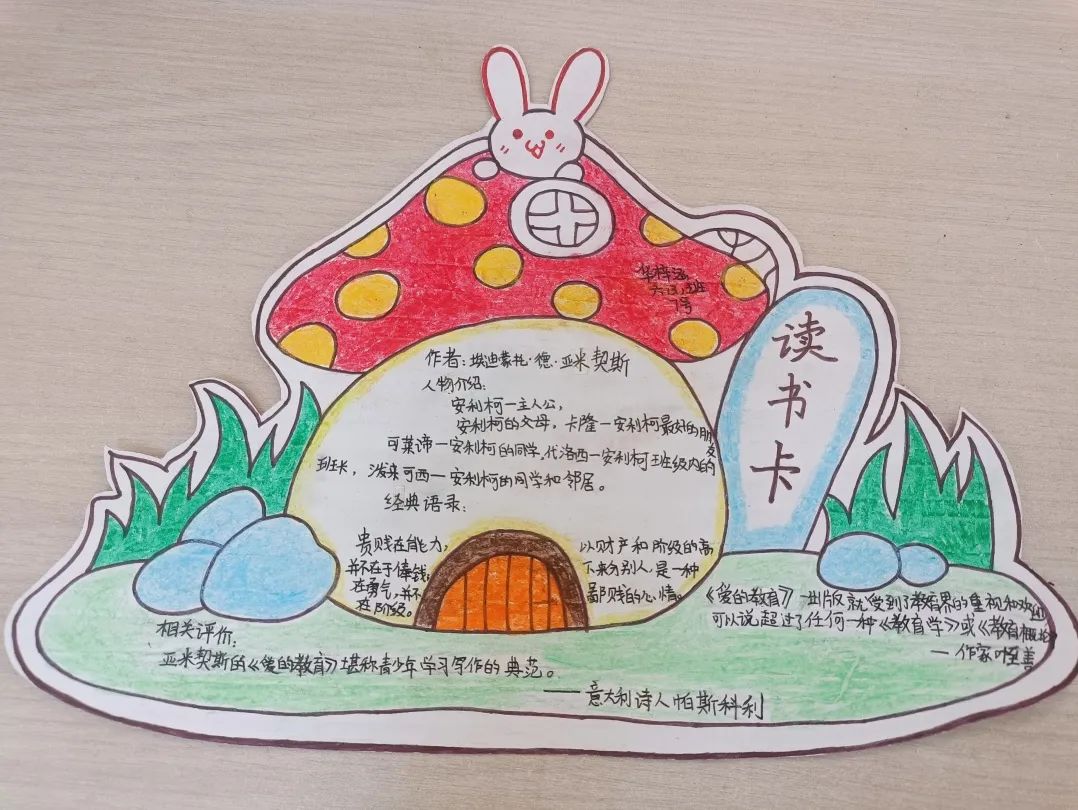 华梓涵
六(3)班
7号
读书卡
作者:埃迪蒙托·德·亚米契斯
人物介绍:
安利柯一主人公,
安利柯的父母,卡隆一安利柯最好的朋友
可莱谛一安利柯的同学,代洛西一安利柯班级内的
班长,泼来可西一安利柯的同学和邻居。
经典语录:
贵贱在能力,
并不在于俸钱,
在勇气,并不
在阶级。
以财产和阶级的高
下来分别人,是一种
鄙贱的心情。
《爱的教育》一出版就受到了教育界的重视和欢迎
可以说超过了任何一种《教育学》或《教育概论》
— 作家叶至善
相关评价:
亚米契斯的《爱的教育》堪称青少年学习写作的典范。
——意大利诗人帕斯科利